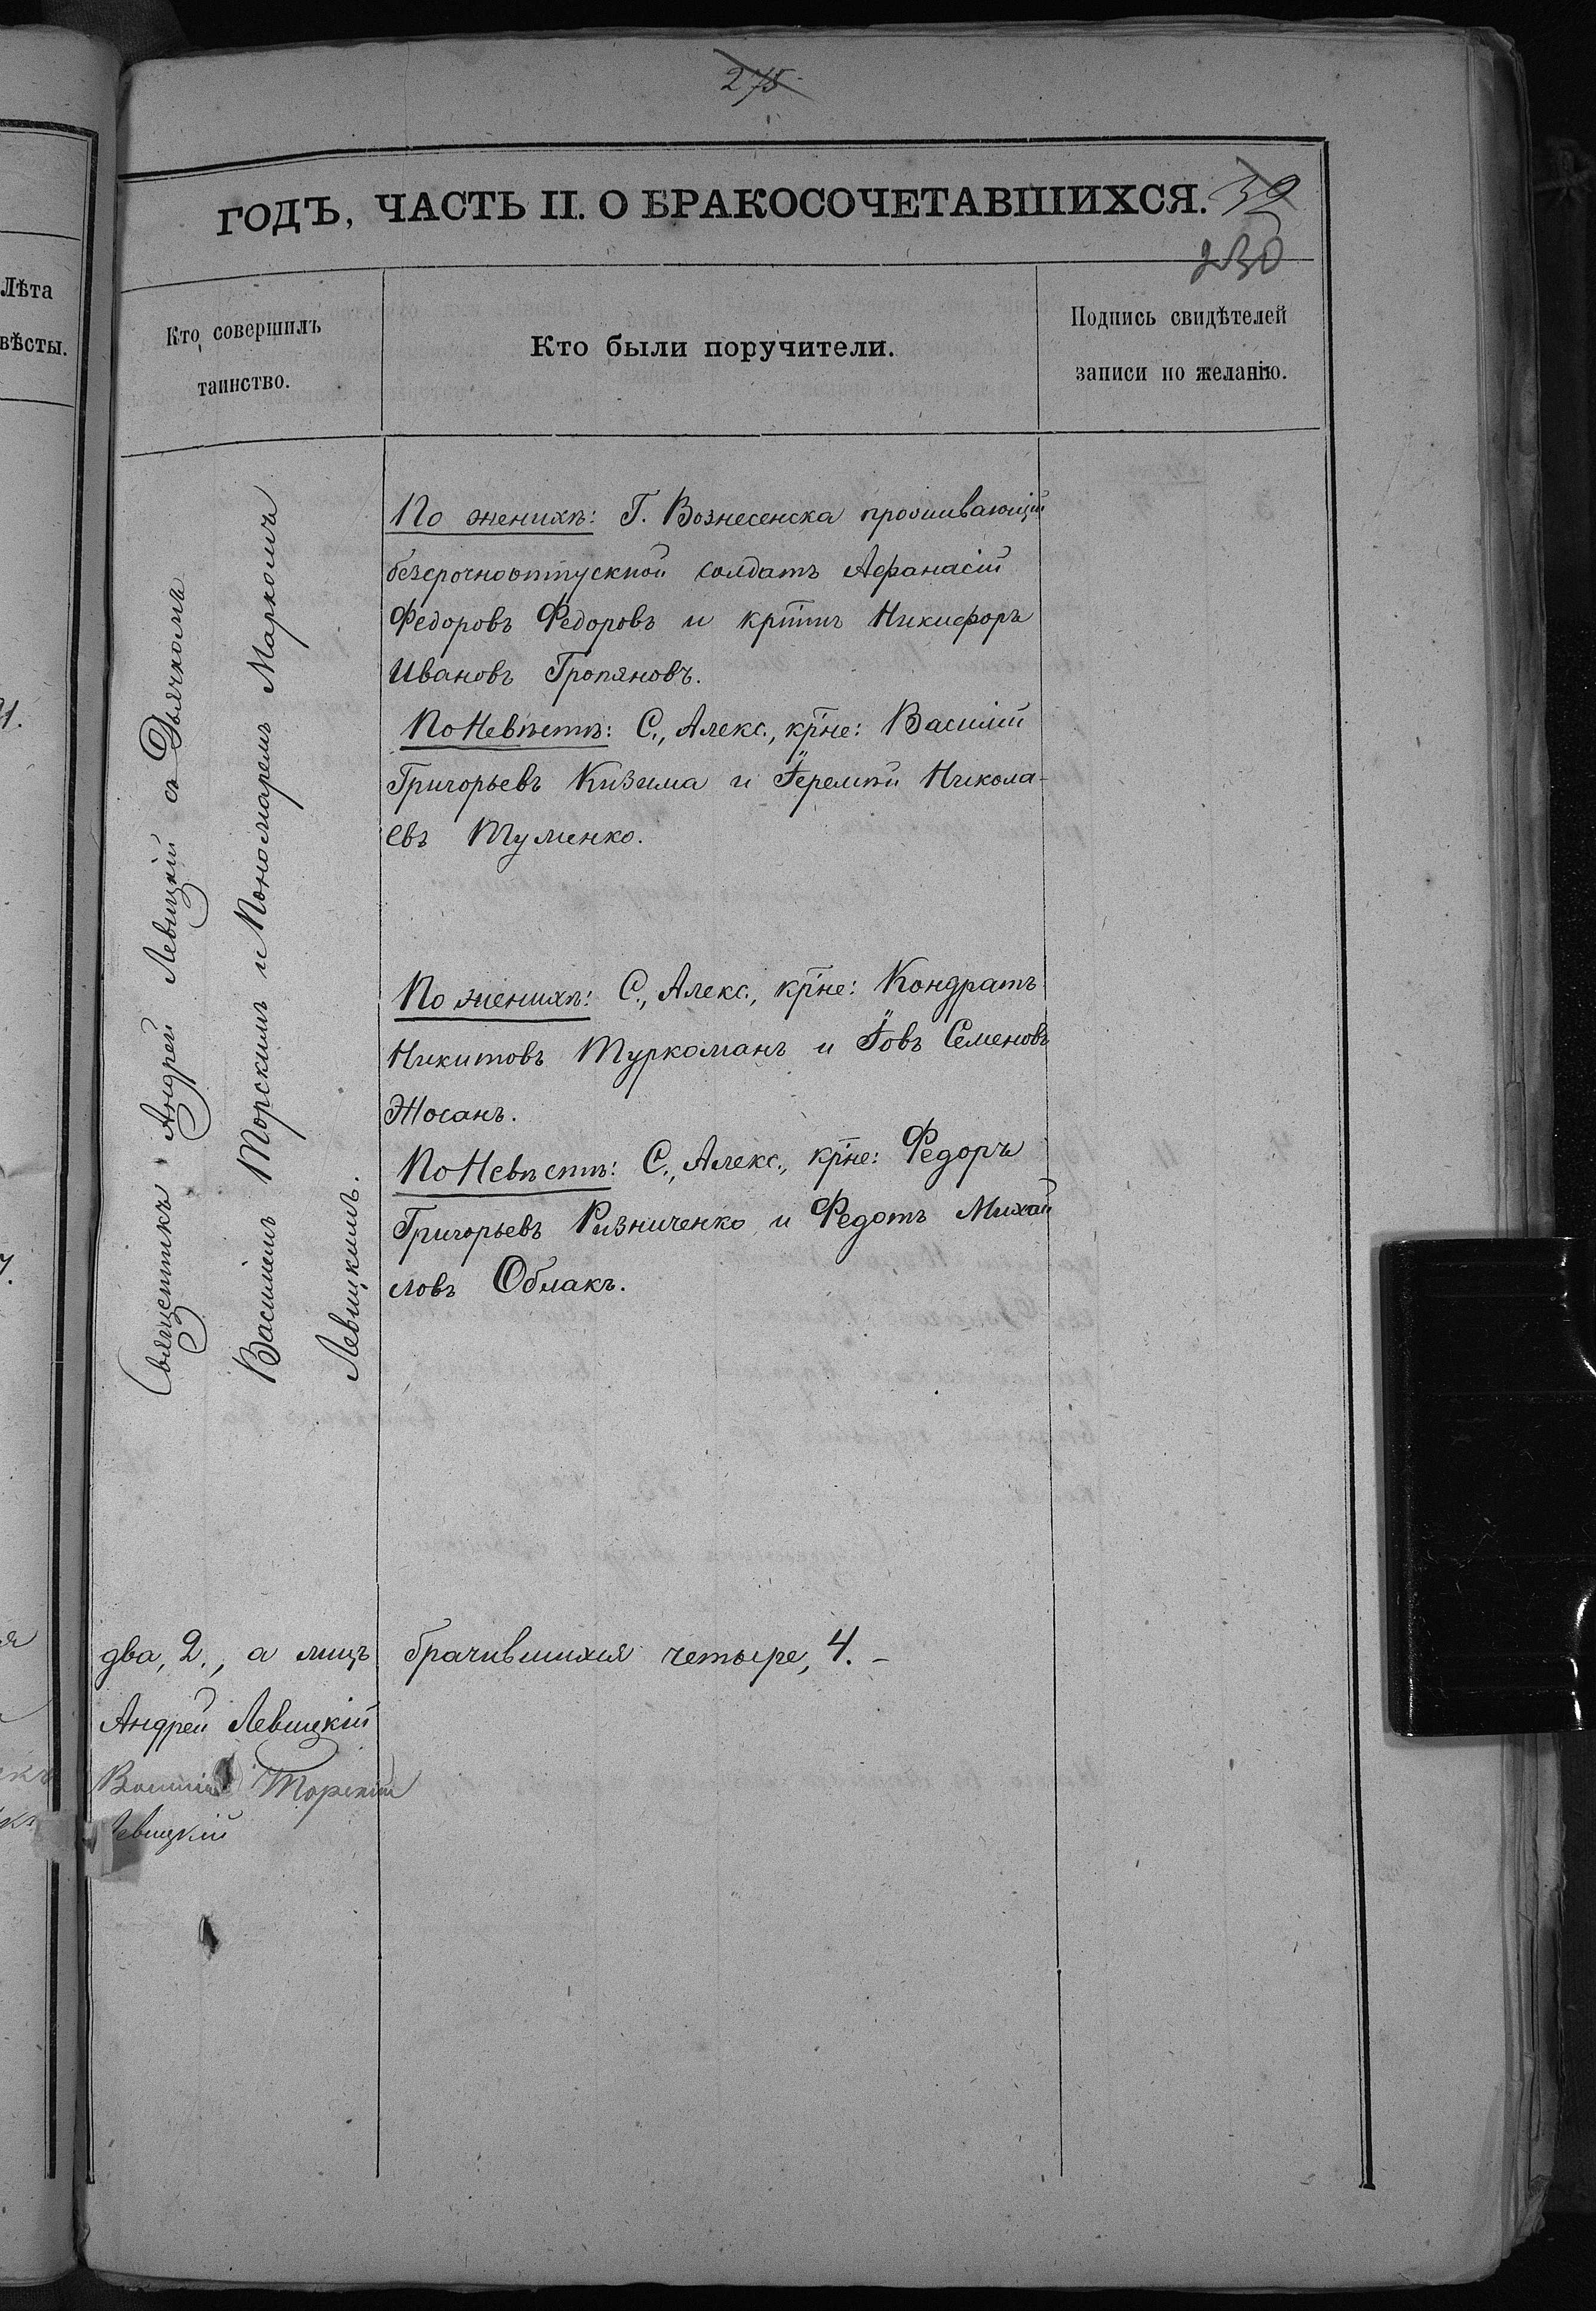 275
ГОДЪ, ЧАСТЬ II. О БРАКОСОЧЕТАВШИХСЯ.
39
230
Лѣта
вѣсты.
Кто совершилъ
таинство.
Кто были поручители.
Подпись свидѣтелей
записи по желанію.
Священикъ Андрей Левицкій съ Дьячкомъ
Василіемъ Торскимъ и Пономаремъ Маркомъ
Левицкимъ.
По женихѣ: Г. Вознесенска проживающій
безсрочноотпускной солдатъ Афанасій
Федоровъ Федоровъ и Никифоръ
Ивановъ Гропяновъ.
По Невѣстѣ: С., Алекс., кр̅не: Василій
Григорьевъ Кизима и Іеремѣй Никола-
евъ Туменко.
По женихѣ: С., Алекс., кр̅не: Кондратъ
Никитовъ Туркоманъ и Іовъ Семеновъ
Жосанъ.
По Невѣстѣ: С., Алекс., кр̅не: Федоръ
Григорьевъ Ризниченко и Федотъ Михай
ловъ Облакъ.
два, 2., а лицъ брачившихся четыре, 4. -
Андрей Левицкій
Василій Торскій
Левицкій